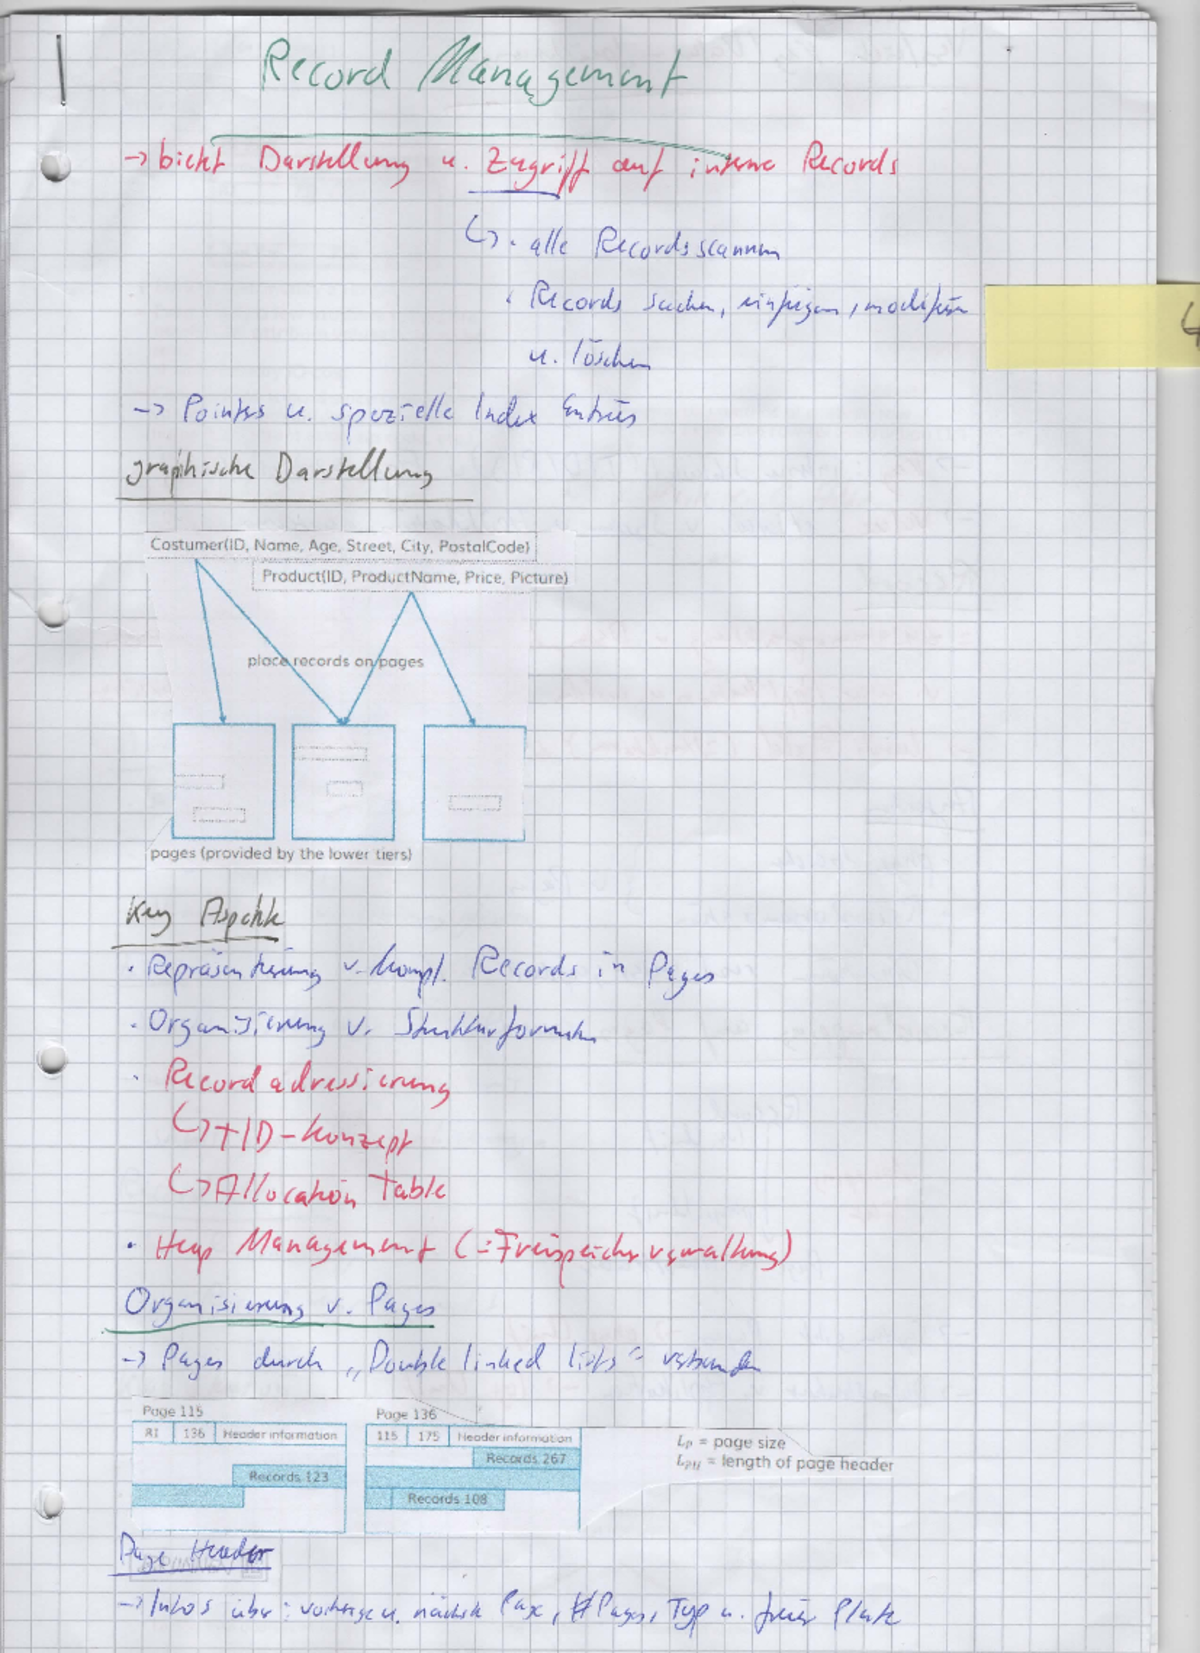 Record Management
-> bietet Darstellung u. Zugriff auf interne Records
↳ · alle Records scannen
· Records suchen, einfügen, modifizieren
u. löschen
4
-> Pointers u. spezielle Index Entries
graphische Darstellung
Costumer(ID, Name, Age, Street, City, PostalCode)
Product(ID, ProductName, Price, Picture)
place records on pages
pages (provided by the lower tiers)
Key Aspekte
· Repräsentierung v. kompl. Records in Pages
· Organisierung v. Strukturformaten
· Recordadressierung
↳ TID-Konzept
↳ Allocation Table
· Heap Management (=Freispeicherverwaltung)
Organisierung v. Pages
-> Pages durch „Double linked lists" verbunden
Page 115
81 136 Header information
Records 123
Page 136
115 175 Header information
Records 267
Records 108
Lp = page size
LPH = length of page header
Page Header
-> Infos über: vorherige u. nächste Page, #Pages, Typ u. freier Platz